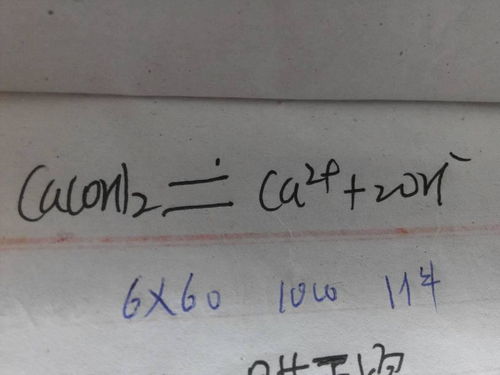 Ca(OH)2 = Ca2+ + 2OH-
6×60 1000 114